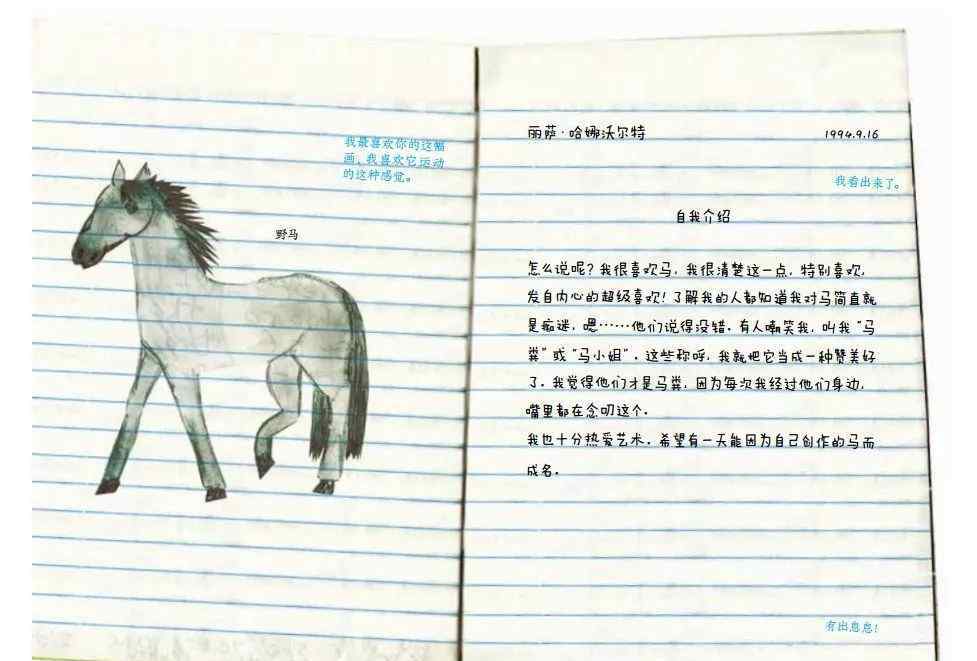 我最喜欢你的这幅
画，我喜欢它运动
的这种感觉。
野马
丽萨·哈娜沃尔特 1994.9.16
我看出来了。
自我介绍
怎么说呢？我很喜欢马，我很清楚这一点，特别喜欢，
发自内心的超级喜欢！了解我的人都知道我对马简直就
是痴迷，嗯……他们说得没错。有人嘲笑我，叫我“马
粪”或“马小姐”。这些称呼，我就把它当成一种赞美好
了。我觉得他们才是马粪，因为每次我经过他们身边，
嘴里都在念叨这个。
我也十分热爱艺术。希望有一天能因为自己创作的马而
成名。
有出息息！